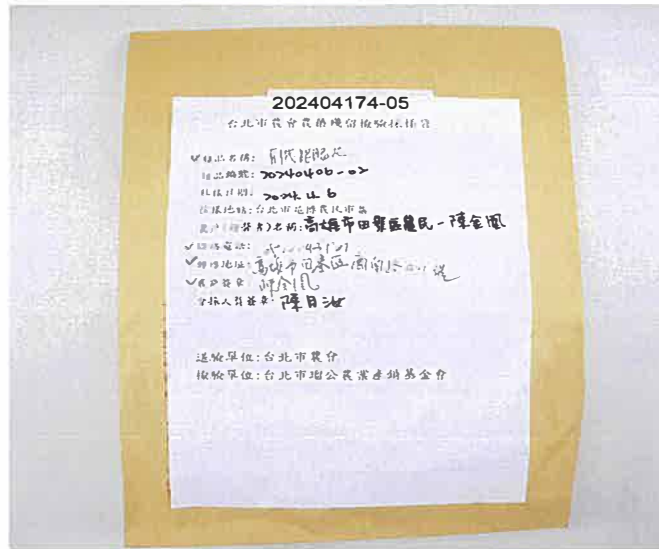 202404174-05
台北市農會農藥殘留檢驗採樣袋
✓樣品名稱:
樣品編號: 20240406-02
採樣日期: 2024.4.6
採樣地點:台北市花博農民市集
農戶(攤位)名稱:高雄市田寮區農民-陳金鳳
✓聯絡電話:
✓聯絡地址:高雄市田寮區
✓農戶簽章:陳金鳳
會採人員簽章:陳日汝
送驗單位:台北市農會
檢驗單位:台北市瑠公農業產銷基金會